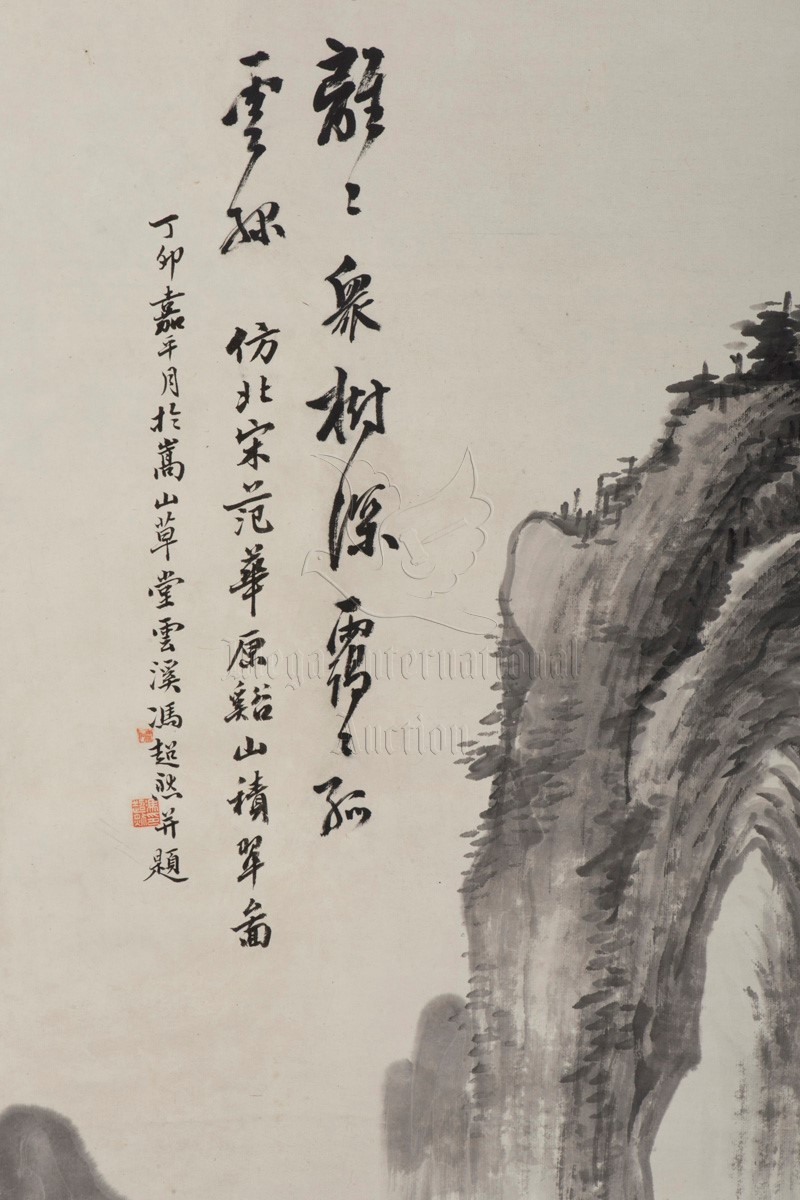 離〻衆樹深靄〻孤
雲 仿北宋范華原谿山積翠圖
丁卯嘉平月於嵩山草堂雲溪馮超然并題
Mega International
Auction